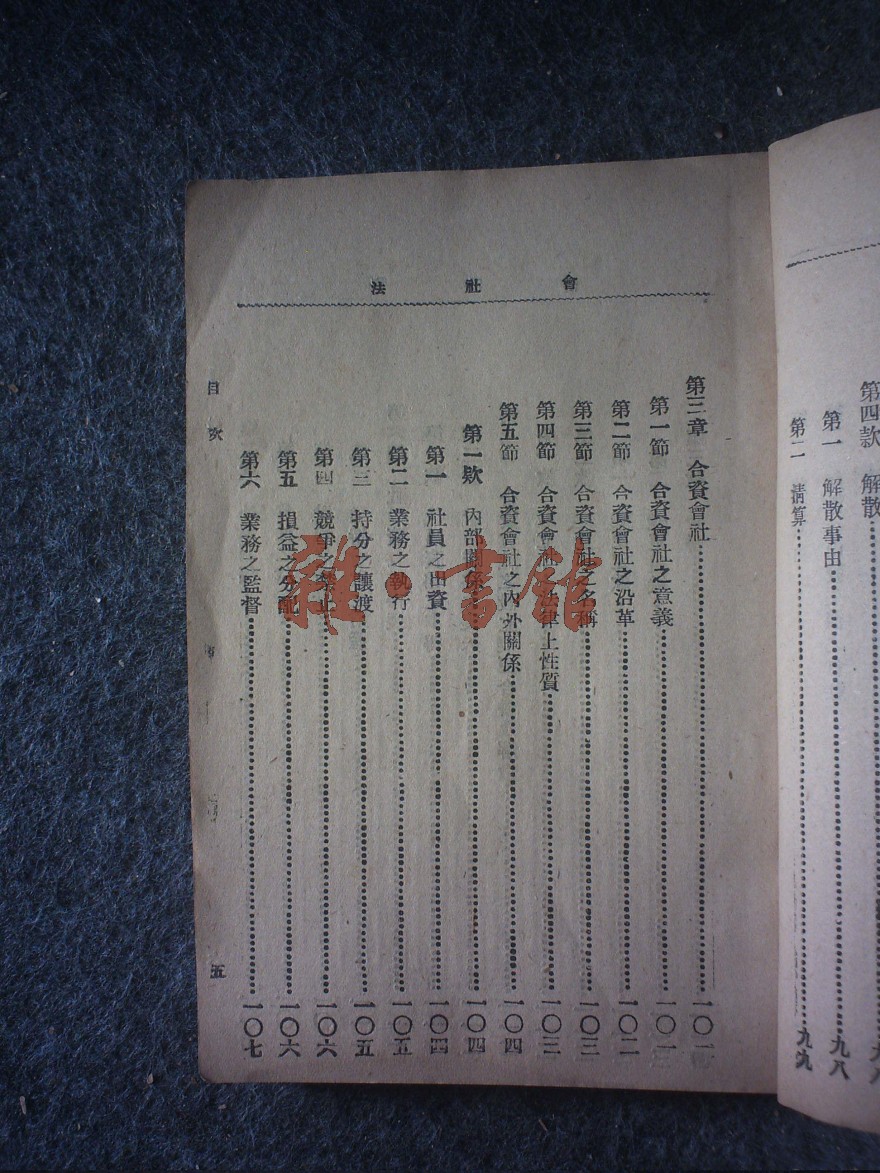 第四款 解散
第一 解散事由……九八
第二 清算……九九
會社法
第三章 合資會社……一〇一
第一節 合資會社之意義……一〇一
第二節 合資會社之沿革……一〇二
第三節 合資會社之名稱……一〇三
第四節 合資會社法律上性質……一〇三
第五節 合資會社之內外關係……一〇四
第一款 內部關係……一〇四
第一 社員之出資……一〇四
第二 業務之執行……一〇五
第三 持分之讓渡……一〇五
第四 競爭之禁止……一〇六
第五 損益之分配……一〇六
第六 業務之監督……一〇七
目次
五
雜·書館